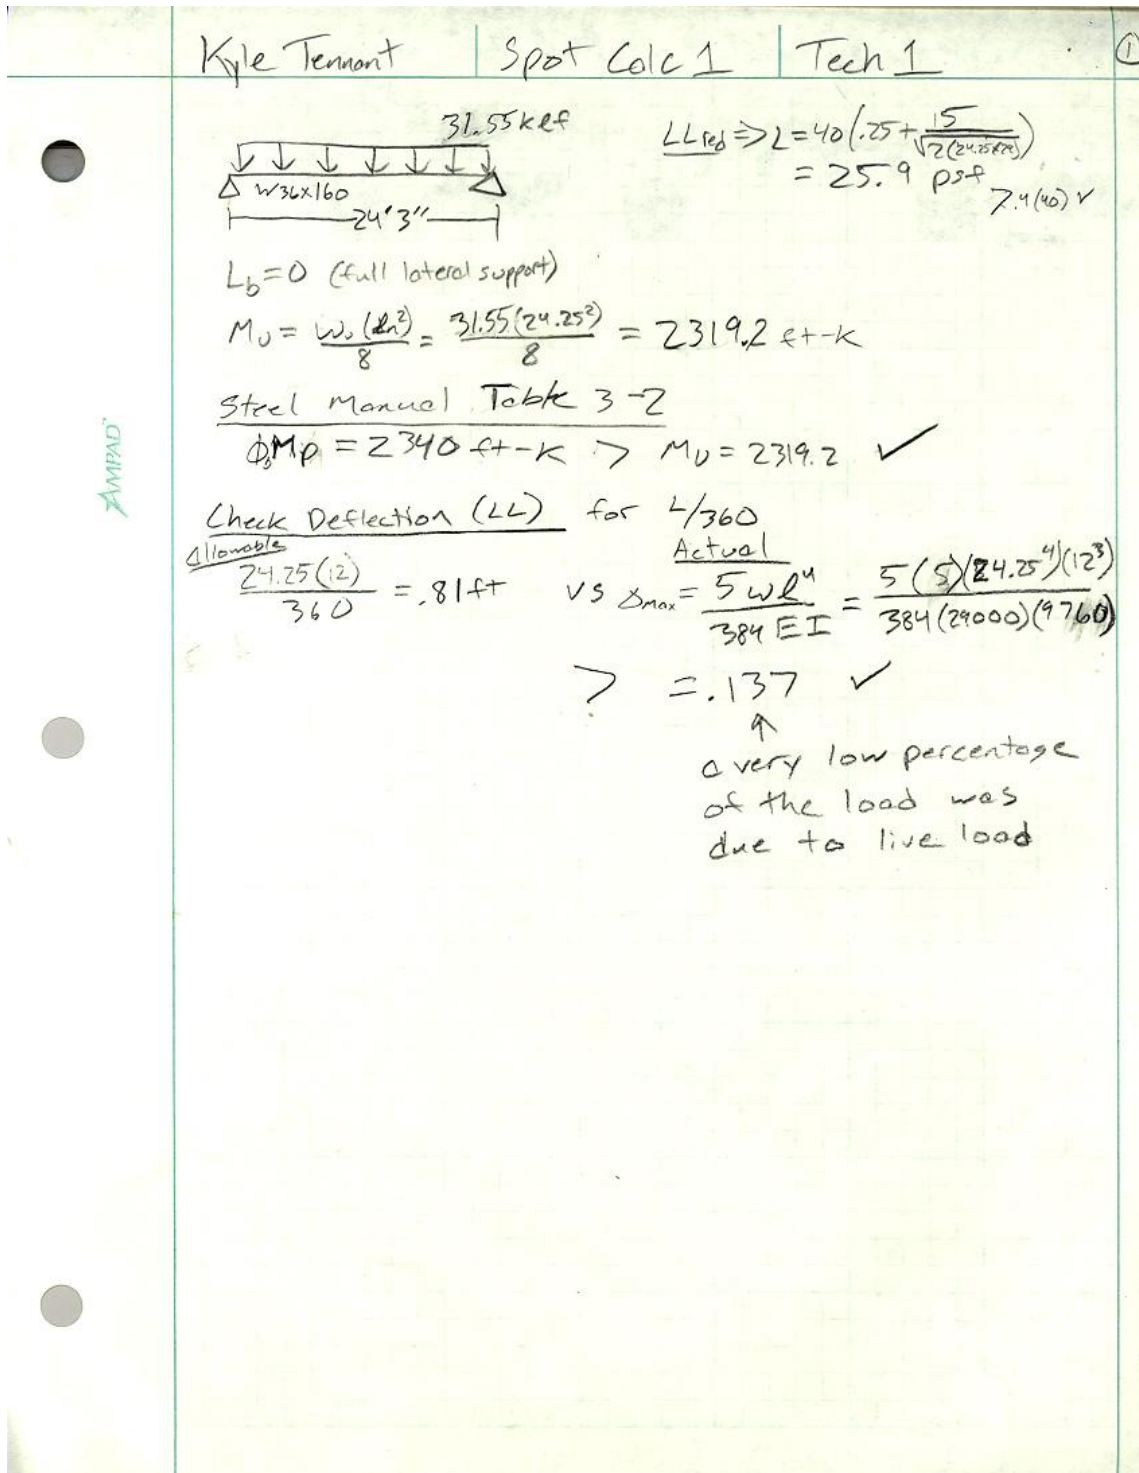 Kyle Tennant | Spot Calc 1 | Tech 1 ①
31.55 klf
W36x160
24'3"
LLred => L = 40(.25 + 15/√2(24.25x29))
= 25.9 psf
>.4(40) ✓
Lb = 0 (full lateral support)
Mu = wu(ln²)/8 = 31.55(24.25²)/8 = 2319.2 ft-k
Steel Manual Table 3-2
ΦbMp = 2340 ft-k > Mu = 2319.2 ✓
Check Deflection (LL) for L/360
Allowable
24.25(12)/360 = .81ft vs
Actual
Δmax = 5wl⁴/384EI = 5(5)(24.25⁴)(12³)/384(29000)(9760)
> = .137 ✓
↑
a very low percentage
of the load was
due to live load
AMPAD™